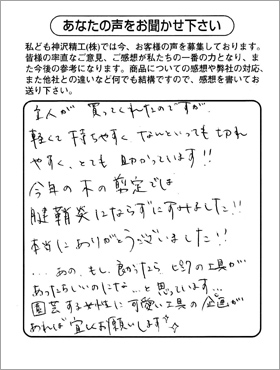 あなたの声をお聞かせ下さい
私ども神沢精工(株)では今、お客様の声を募集しております。
皆様の率直なご意見、ご感想が私たちの一番の力となり、ま
た今後の参考になります。商品についての感想や弊社の対応、
また他社との違いなど何でも結構ですので、感想を書いてお
送り下さい。
主人が 買ってくれたのですが、
軽くて 持ちやすく なんといっても 切れ
やすく、とても 助かっています!!
今年の木の剪定では
腱鞘炎にならずにすみました!!
本当にありがとうございました!!
…あの、もし、良かったら ピンクの工具が
あったらいいのにな…と思っています…
園芸する女性に可愛い工具の企画が
あれば宜しくお願いします☆